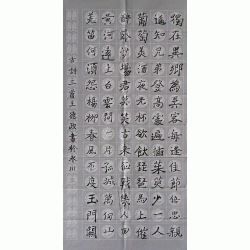 獨在異鄉為異客每逢佳節倍思親
遙知兄弟登高處遍插茱萸少一人
葡萄美酒夜光杯欲飲琵琶馬上催
醉臥沙場君莫笑古來征戰幾人回
黃河遠上白雲間一片孤城萬仞山
羌笛何須怨楊柳春風不度玉門關
古詩三首王德政書於永川